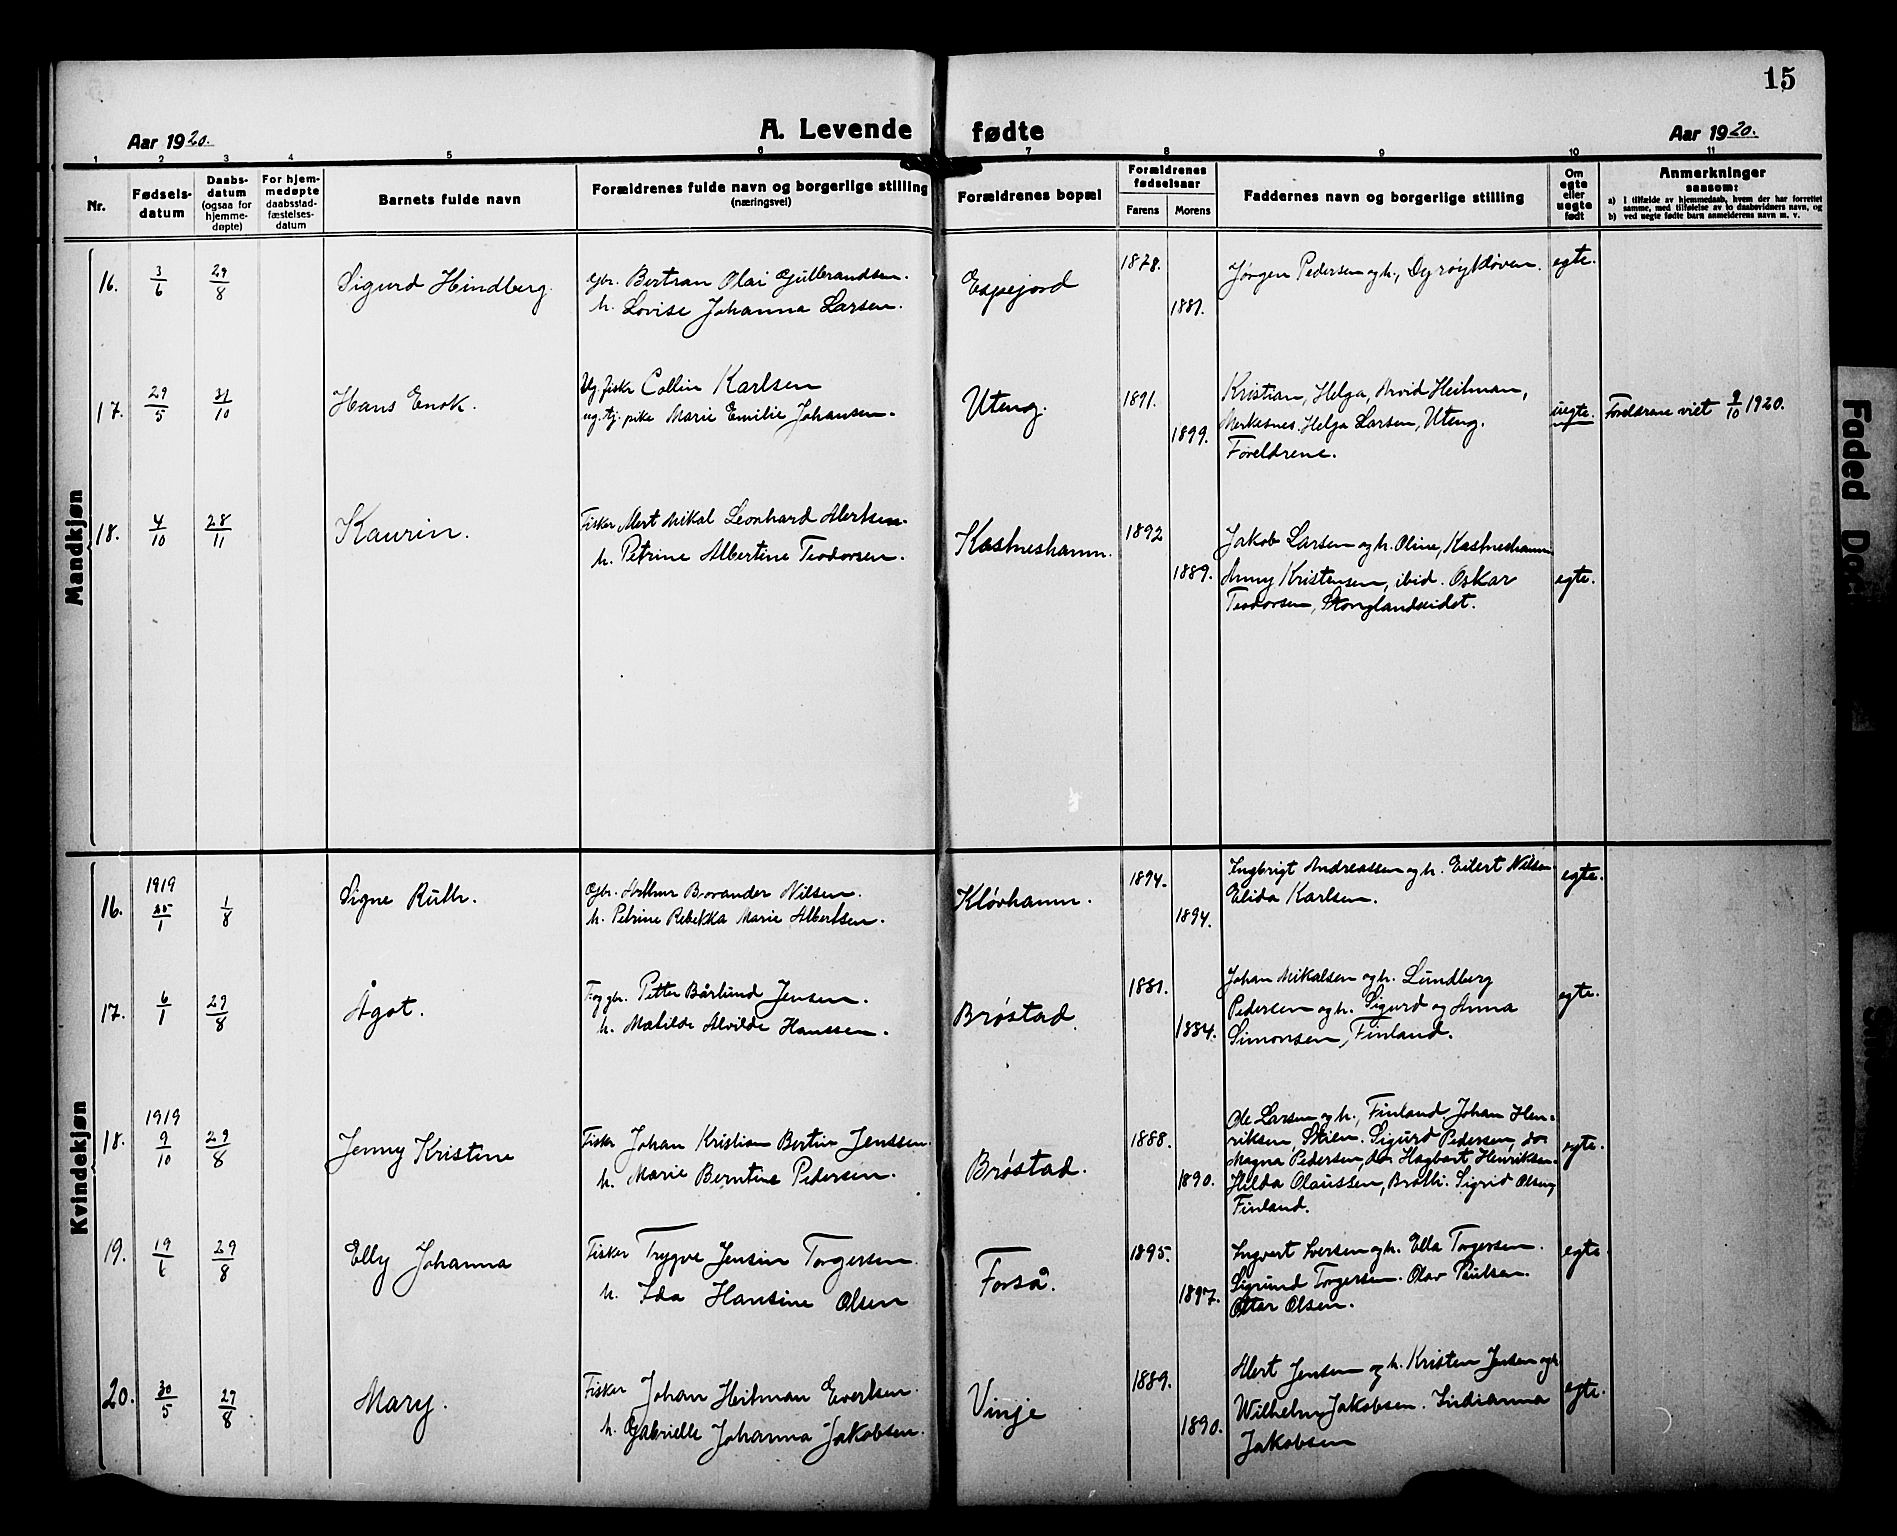 15
Aar 1920. A. Levende fødte Aar 1920.
1 2 3 4 5 6 7 8 9 10 11
Nr. Fødsels-datum Daabs-datum (ogsaa for hjemme-døpte) For hjem-medøpte daabsstad-fæstelses-datum Barnets fulde navn Forældrenes fulde navn og borgerlige stilling (næringsvei) Forældrenes bopæl Forældrenes fødselsaar Farens Morens Faddernes navn og borgerlige stilling Om egte eller uegte født Anmerkninger saasom:
a) I tilfælde av hjemmedaab, hvem der har forrettet samme, med tilføielse av to daabsvidners navn, og
b) ved uegte fødte barn anmelderens navn m. v.
Mandkjøn
16. 3/6 29/8 Sigurd Hindberg. Gbr. Bertran Olai Gulbrandsen. Espejord 1878. Jørgen Pedersen og h., Dyrøykløven. egte.
h. Lovise Johanna Larsen. 1881.
17. 29/5 31/10 Hans Enok. Ug. fiskr Collin Karlsen Uteng. 1891. Kristian, Helga, Arvid Heitman, uegte. Foreldrene viet 9/10 1920.
ug. tj. pike Marie Emilie Johansen. 1899. Merkesnes. Helga Larsen, Uteng.
Foreldrene.
18. 4/10 28/11 Kaurin. Fisker Alert Mikal Leonhard Alertsen. Kastneshamn. 1892 Jakob Larsen og h. Oline, Kastneshamn
h. Petrine Albertine Teodorsen. 1889. Anny Kristensen, ibid. Oskar egte.
Teodorsen, Stonglandseidet.
Kvindekjøn
16. 1919 25/1 1/8 Signe Ruth. Gbr. Arthur Brovander Nilsen. Kløvhamn. 1894. Ingbrigt Andreassen og h. Eilert Nilsen egte.
h. Petrine Rebekka Marie Albertsen. 1894. Elida Karlsen.
17. 6/1 29/8 Ågot. F. og gbr. Petter Bårlund Jensen. Brøstad. 1881. Johan Mikalsen og h. Lundberg egte.
h. Matilde Alvilde Hanssen. 1884. Pedersen og h. Sigurd og Anna
Simonsen, Finland.
18. 1919 9/10 29/8 Jenny Kristine Fisker Johan Kristian Bertin Jenssen. Brøstad. 1888. Ole Larsen og h., Finland, Johan Hen-
h. Marie Berntine Pedersen. 1890. riksen Skien. Sigurd Pedersen, do egte.
Magna Pedersen, do. Hagbart Henriksen.
Hilda Olaussen, Brøtti. Sigrid Olsen,
Finland.
19. 19/6 29/8 Elly Johanna Fisker Trygve Jensin Torgersen. Forså. 1895. Ingvart Iversen og h. Ella Torgersen. egte.
h. Ida Hansine Olsen 1897. Sigrund Torgersen. Olav Paulsen.
Ottar Olsen.
20. 30/5 29/8 Mary. Fisker Johan Heitman Evertsen. Vinje 1889. Alert Jensen og h. Kristen Jensen og h. egte.
h. Gabrielle Johanna Jakobsen. 1890. Wilhelm Jakobsen. Indianna
Jakobsen
Faded